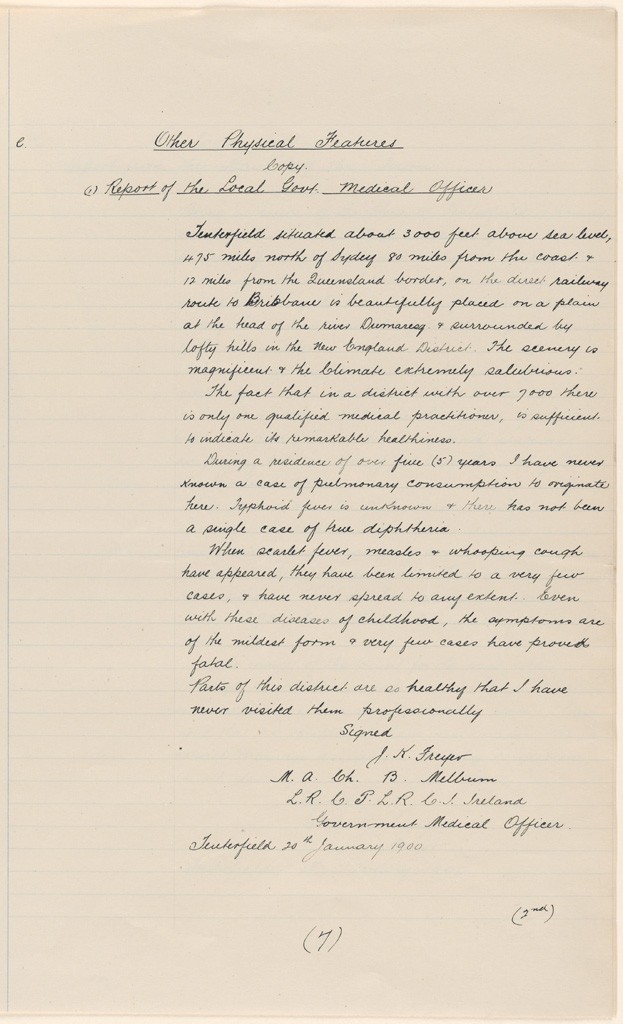 C. Other Physical Features
Copy.
(1) Report of the Local Govt. Medical Officer
Tenterfield situated about 3000 feet above sea level,
475 miles north of Sydey 80 miles from the coast &
12 miles from the Queensland border, on the direct railway
route to Brisbane is beautifully placed on a plain
at the head of the river Dumaresq & surrounded by
lofty hills in the New England District. The scenery is
magnificent & the Climate extremely salubrious:
The fact that in a district with over 7000 there
is only one qualified medical practitioner, is sufficient
to indicate its remarkable healthiness.
During a residence of over five (5) years I have never
known a case of pulmonary consumption to originate
here. Typhoid fever is unknown & there has not been
a single case of true diphtheria.
When scarlet fever, measles & whooping cough
have appeared, they have been limited to a very few
cases, & have never spread to any extent. Even
with these diseases of childhood, the symptoms are
of the mildest form & very few cases have proved
fatal.
Parts of this district are so healthy that I have
never visited them professionally
Signed
J. K. Freyer
M. A. Ch. B. Melburn
L. R. C. P. L. R. C. S. Ireland
Government Medical Officer.
Tenterfield 20th January 1900
(2nd)
(7)